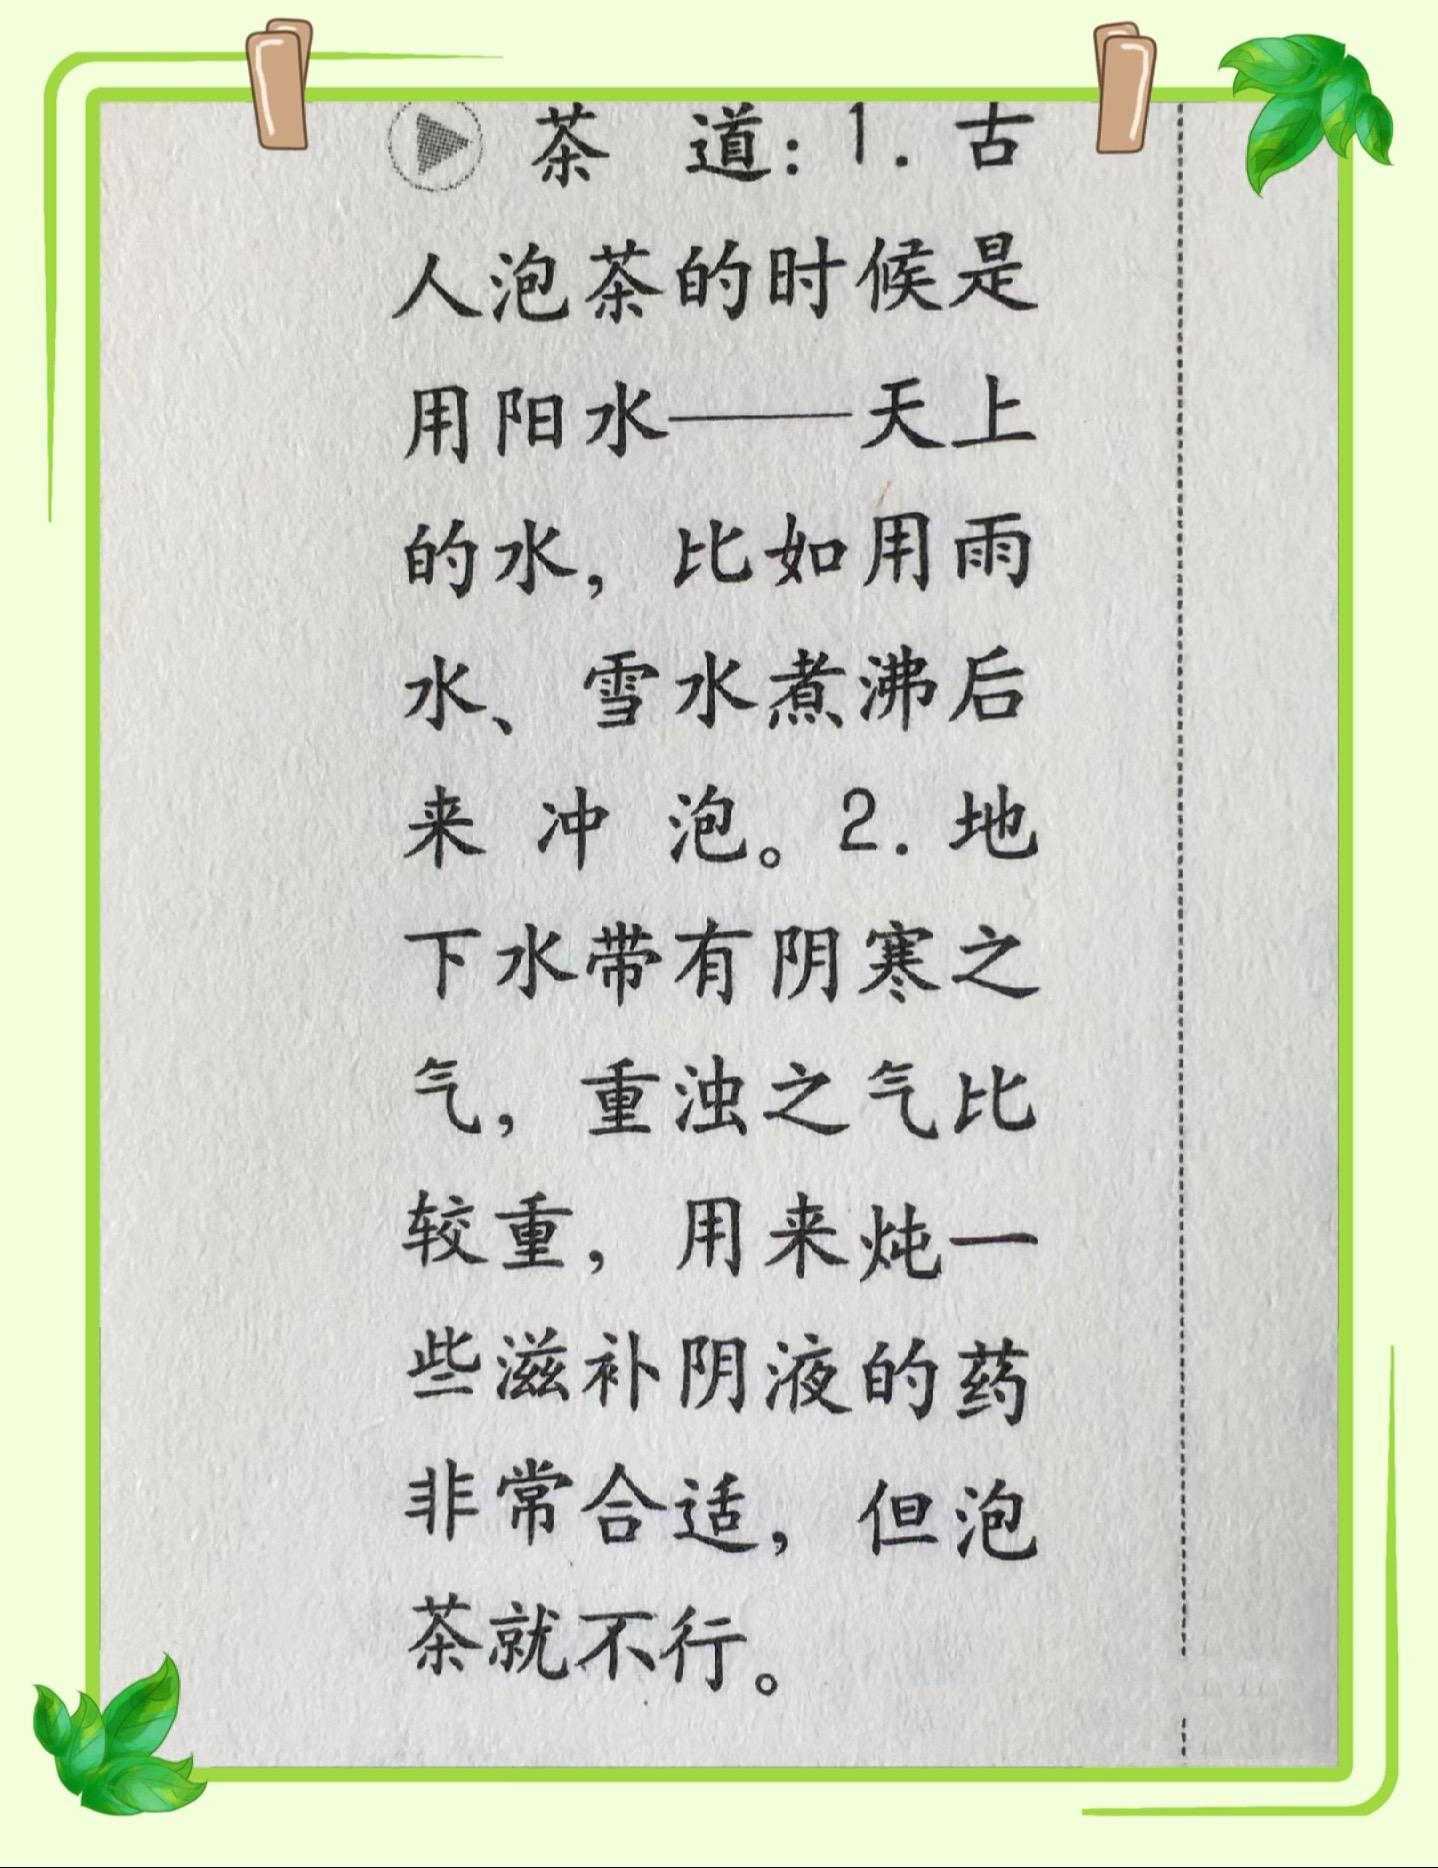 茶 道：1. 古
人泡茶的时候是
用阳水——天上
的水，比如用雨
水、雪水煮沸后
来 冲 泡。2. 地
下水带有阴寒之
气，重浊之气比
较重，用来炖一
些滋补阴液的药
非常合适，但泡
茶就不行。